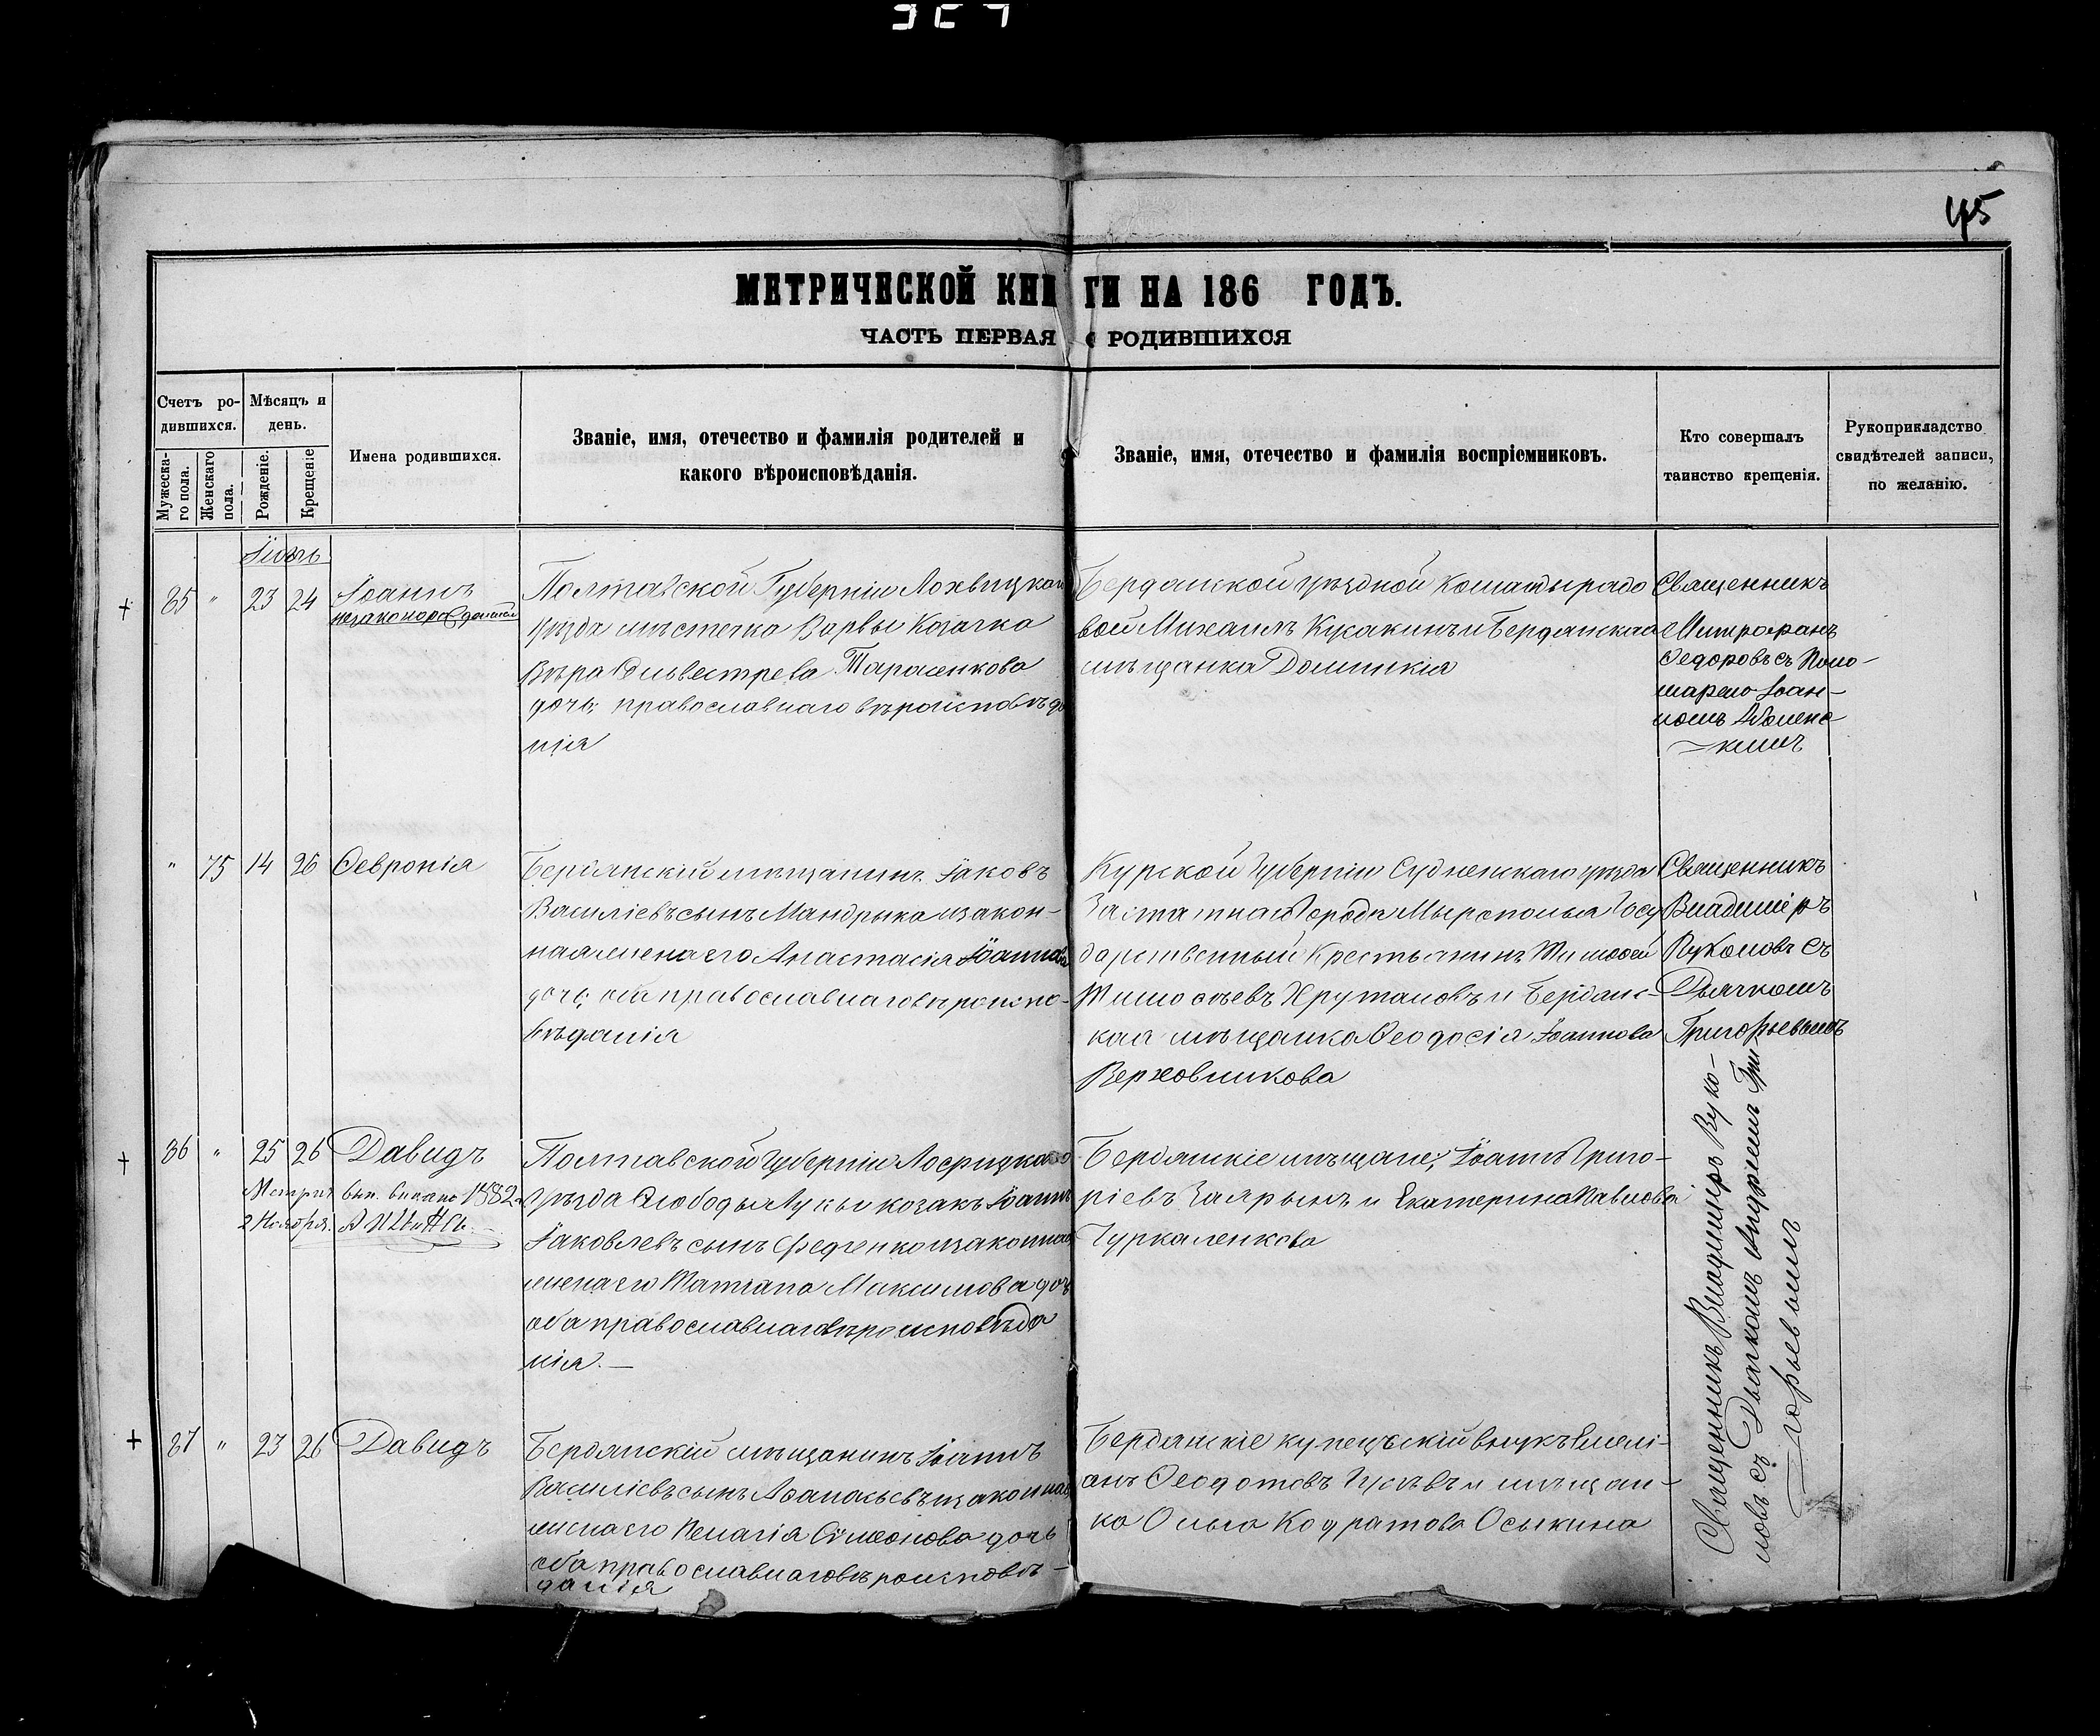 45
МЕТРИЧЕСКОЙ КНИГИ НА 186 ГОДЪ.
ЧАСТЬ ПЕРВАЯ О РОДИВШИХСЯ
Счетъ родившихся.
Мужескаго пола.
Женскаго пола.
Мѣсяцъ и день.
Рожденіе.
Крещеніе
Имена родившихся.
Званіе, имя, отечество и фамилія родителей и
какого вѣроисповѣданія.
Званіе, имя, отечество и фамилія воспріемниковъ.
Кто совершалъ
таинство крещенія.
Рукоприкладство
свидѣтелей записи,
по желанію.
Іюнь
85 " 23 24 Іоаннъ
незаконорожденный
Полтавской Губерніи Лохвицкой
уѣзда мѣстечка Варвы Козачка
Вѣра Сильвестрева Тарасенкова
дочь; православнаго вѣроисповѣда
нія
Бердянской уѣздной команды рядо
вой Михаилъ Кукакинъ и Бердянская
мѣщанка Домникія
Священникъ
Митрофанъ
Федоровъ съ Поно-
маремъ Іоан-
номъ
кимъ
" 75 14 26 Февронія
Бердянскій мѣщанинъ Іаковъ
Василіевъ сынъ Мандрыка и закон-
ная жена его Анастасія Іоаннова
дочь; оба православнаго вѣроиспо-
вѣданія
Курской Губерніи Суджанскаго уѣзда
Заштатнаго Города Мирополья Госу
дарственный Крестьянинъ Тимофей
Тимофѣевъ и Бердянс-
кая мѣщанка Феодосія Іоаннова
Верховникова
Священникъ
Владиміръ
Руколовъ съ
Дьячкомъ
Григорьевымъ
86 " 25 26 Давидъ
Метрич. вып. 1882 г.
2 Ноября.
Полтавской Губерніи
уѣзда Слободы Луки козакъ Іоаннъ
Іаковлевъ сынъ Федченко и законная
жена его Татіана Максимова доч
оба православнаго вѣроисповѣда
нія. —
Бердянскіе мѣщане; Іоаннъ Григо-
ріевъ Заярынъ и Екатерина Павлова
Чуркаленкова
Священникъ Владиміръ Руко-
ловъ съ Дьячкомъ Андреемъ Гри
горьевымъ
87 " 23 26 Давидъ
Бердянскій мѣщанинъ Іоаннъ
Василіевъ сынъ Афанасьевъ и законная
жена его Пелагія Сѵмеонова дочь
оба православнаго вѣроисповѣ-
данія
Бердянскіе купеческій внукъ Емелі-
анъ Феодотовъ Гусѣвъ и мѣщан-
ка Ольга Кодратова Осыкина